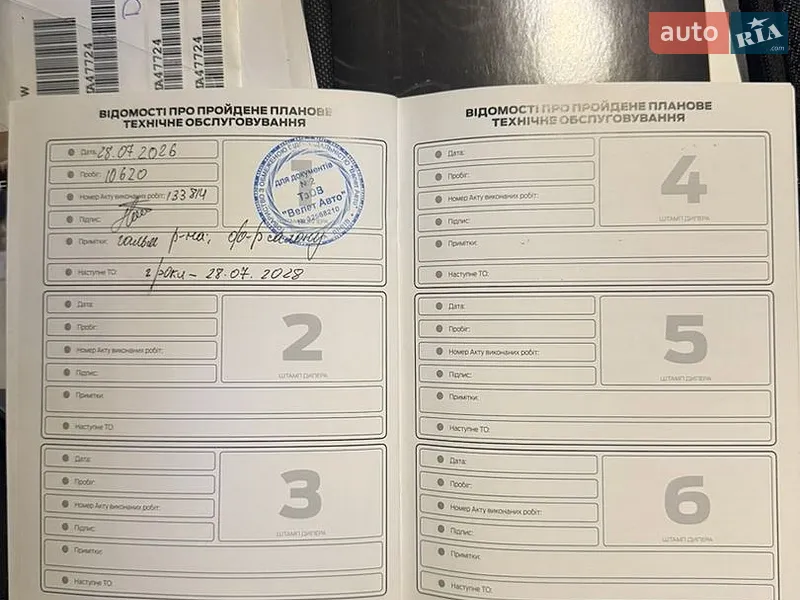 auto RIA .com
TA47724
TA47724
TA47724
ВІДОМОСТІ ПРО ПРОЙДЕНЕ ПЛАНОВЕ
ТЕХНІЧНЕ ОБСЛУГОВУВАННЯ
Дата: 28.07.2026
Пробіг: 10620
Номер Акту виконаних робіт: 133814
Підпис:
для документів
№2
ТзОВ
"Велет Авто"
Примітки: гальм р-на, ф-р салону
Наступне ТО: 2 роки - 28.07.2028
Дата:
Пробіг:
Номер Акту виконаних робіт:
Підпис:
2
ШТАМП ДИЛЕРА
Примітки:
Наступне ТО:
Дата:
Пробіг:
Номер Акту виконаних робіт:
Підпис:
3
ШТАМП ДИЛЕРА
Примітки:
Наступне ТО:
ВІДОМОСТІ ПРО ПРОЙДЕНЕ ПЛАНОВЕ
ТЕХНІЧНЕ ОБСЛУГОВУВАННЯ
Дата:
Пробіг:
Номер Акту виконаних робіт:
Підпис:
4
ШТАМП ДИЛЕРА
Примітки:
Наступне ТО:
Дата:
Пробіг:
Номер Акту виконаних робіт:
Підпис:
5
ШТАМП ДИЛЕРА
Примітки:
Наступне ТО:
Дата:
Пробіг:
Номер Акту виконаних робіт:
Підпис:
6
ШТАМП ДИЛЕРА
Примітки:
Наступне ТО: